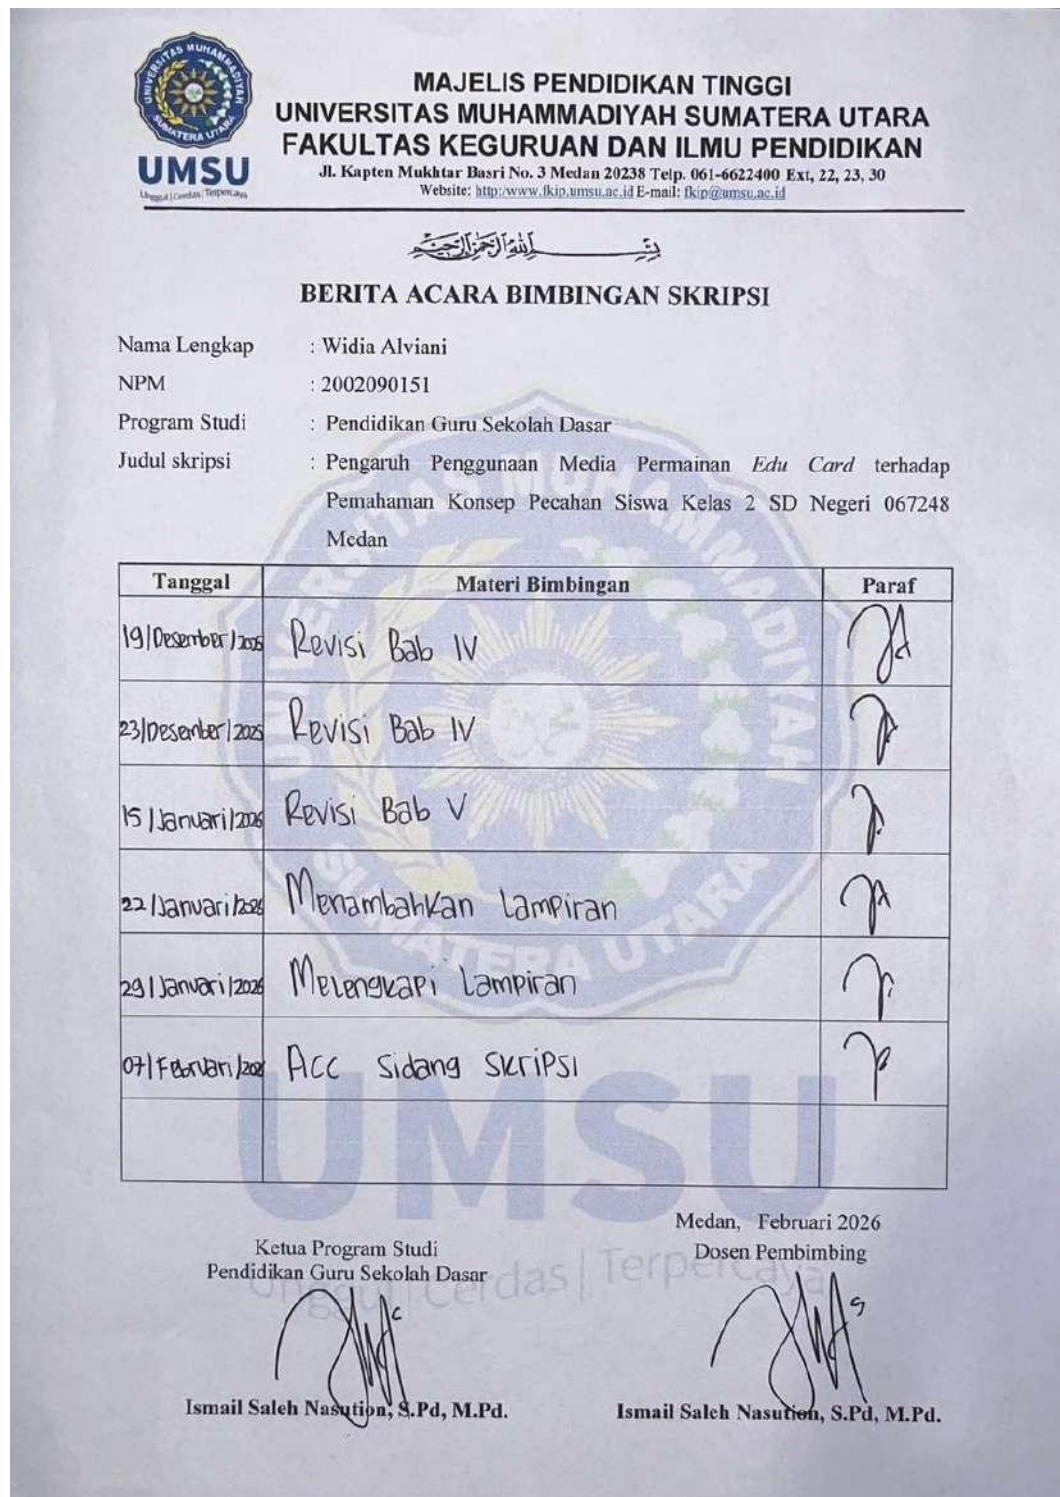 UNIVERSITAS MUHAMMADIYAH
SUMATERA UTARA
UMSU
Unggul | Cerdas | Terpercaya
MAJELIS PENDIDIKAN TINGGI
UNIVERSITAS MUHAMMADIYAH SUMATERA UTARA
FAKULTAS KEGURUAN DAN ILMU PENDIDIKAN
Jl. Kapten Mukhtar Basri No. 3 Medan 20238 Telp. 061-6622400 Ext, 22, 23, 30
Website: http:/www.fkip.umsu.ac.id E-mail: fkip@umsu.ac.id
بِسْمِ اللهِ الرَّحْمٰنِ الرَّحِيْمِ
BERITA ACARA BIMBINGAN SKRIPSI
Nama Lengkap : Widia Alviani
NPM : 2002090151
Program Studi : Pendidikan Guru Sekolah Dasar
Judul skripsi : Pengaruh Penggunaan Media Permainan Edu Card terhadap
Pemahaman Konsep Pecahan Siswa Kelas 2 SD Negeri 067248
Medan
Tanggal Materi Bimbingan Paraf
19/Desember/2025 Revisi Bab IV
23/Desember/2025 Revisi Bab IV
15/Januari/2026 Revisi Bab V
22/Januari/2026 Menambahkan Lampiran
29/Januari/2026 Melengkapi Lampiran
07/Februari/2026 Acc Sidang Skripsi
UNIVERSITAS MUHAMMADIYAH
SUMATERA UTARA
UMSU
Unggul | Cerdas | Terpercaya
Medan, Februari 2026
Ketua Program Studi Dosen Pembimbing
Pendidikan Guru Sekolah Dasar
Ismail Saleh Nasution, S.Pd, M.Pd. Ismail Saleh Nasution, S.Pd, M.Pd.